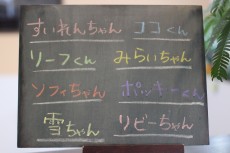 すいれんちゃん ココくん
リーフくん みらいちゃん
ソフィちゃん ポッキーくん
雪ちゃん リビーちゃん